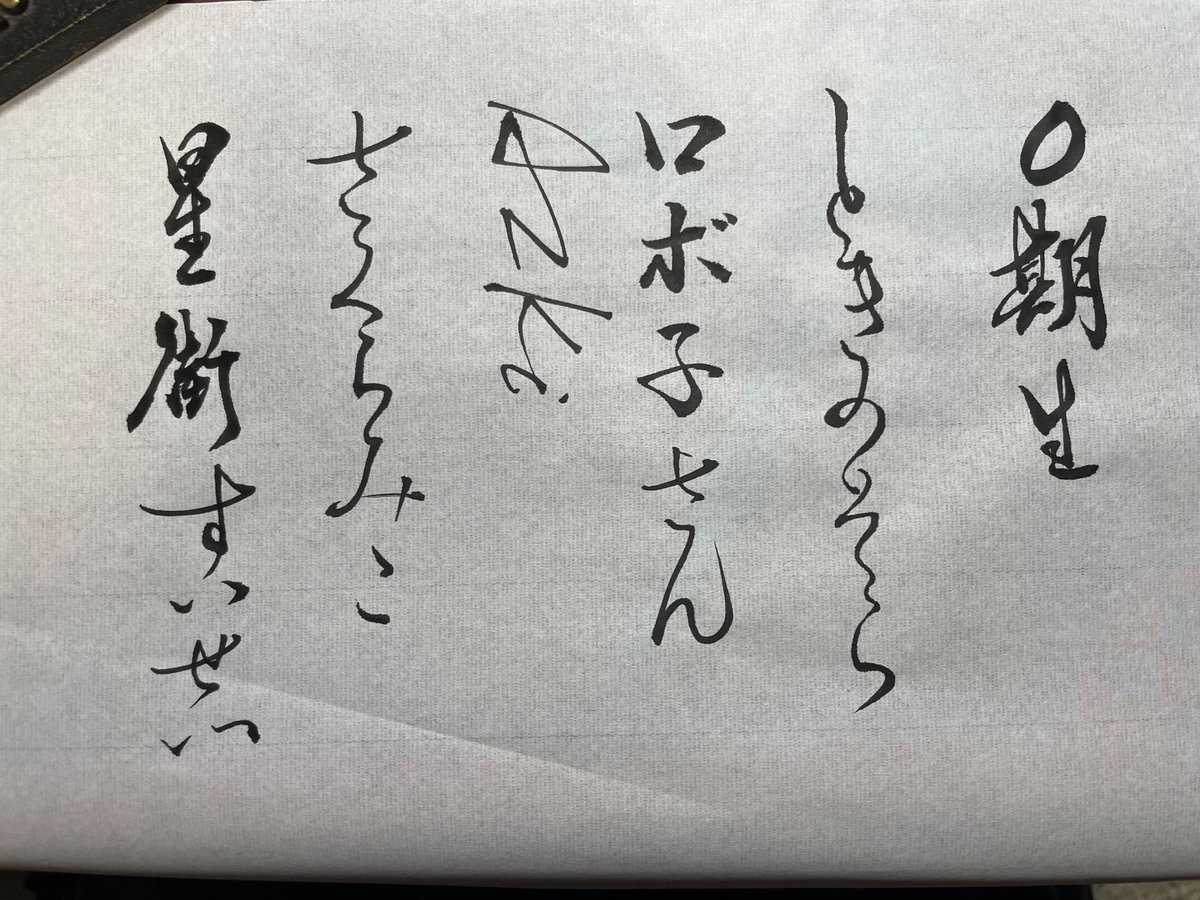 0期生
ときのそら
ロボ子さん
AZKi
さくらみこ
星街すいせい